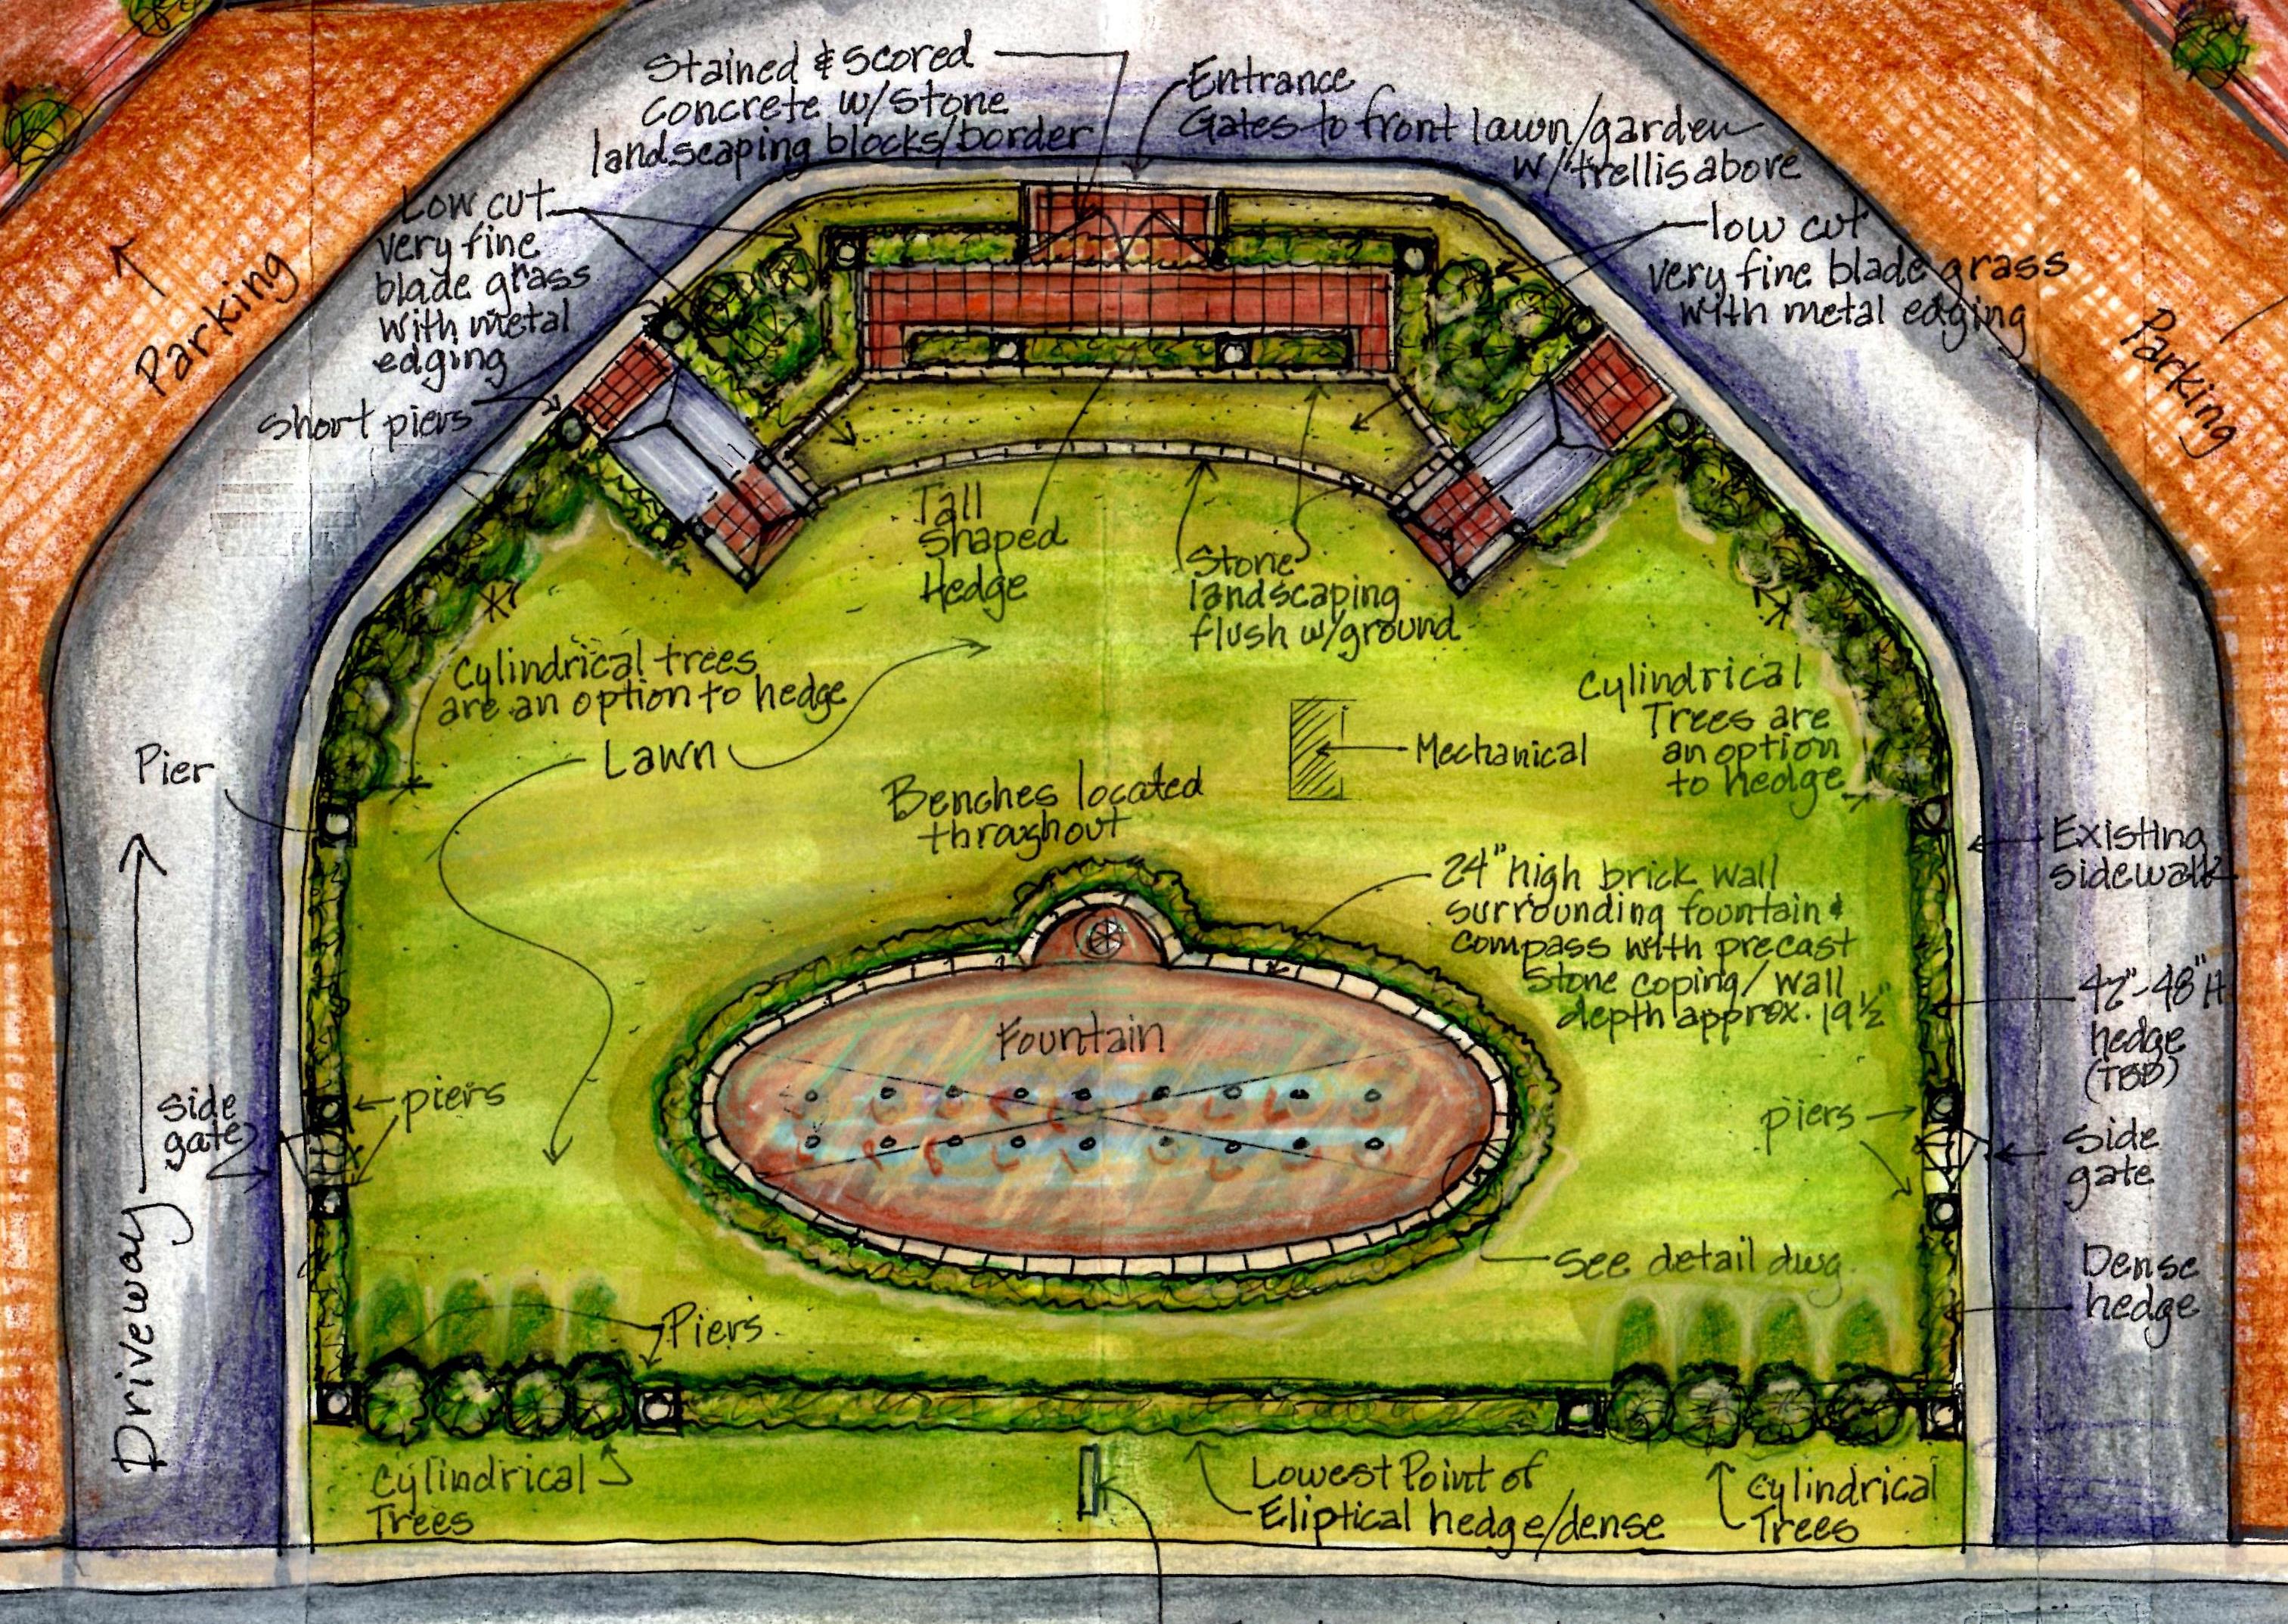 Stained & scored
concrete w/stone
landscaping blocks/border
Entrance
Gates to front lawn/garden
w/trellis above
Low cut
very fine
blade grass
with metal
edging
low cut
very fine blade grass
with metal edging
Parking
Parking
short piers
Tall
shaped
Hedge
Stone
landscaping
flush w/ground
Cylindrical trees
are an option to hedge
Cylindrical
Trees are
an option
to hedge
Lawn
Mechanical
Pier
Benches located
throughout
Existing
sidewalk
24" high brick wall
surrounding fountain &
compass with precast
stone coping/wall
depth approx. 19½"
42"-48" H
hedge
(TBD)
Fountain
side
gate
piers
piers
side
gate
Driveway
See detail dwg.
Dense
hedge
Piers
Cylindrical
Trees
Lowest Point of
Eliptical hedge/dense
Cylindrical
Trees